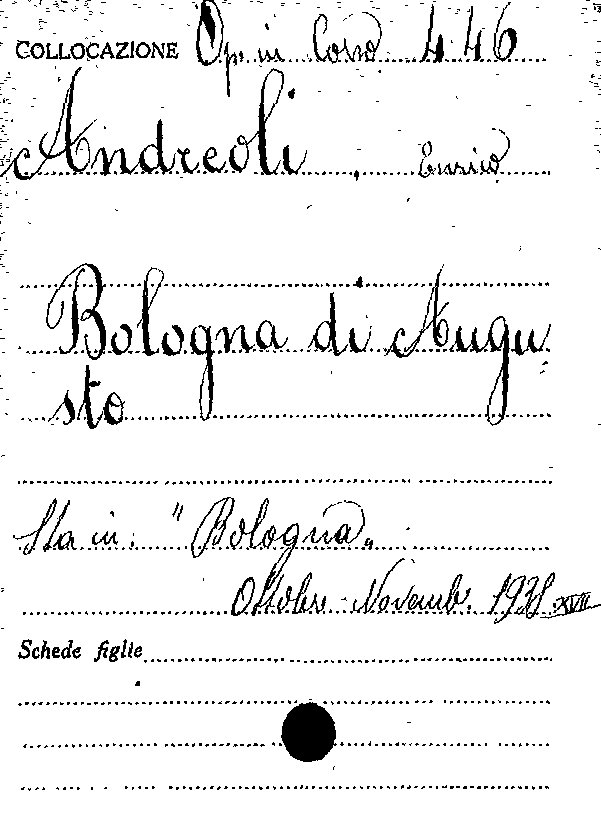 COLLOCAZIONE Op. in Corso 446
Andreoli, Enrico
Bologna di Augu
sto
Sta in: "Bologna„
Ottobre-Novemb. 1938 XVII
Schede figlie